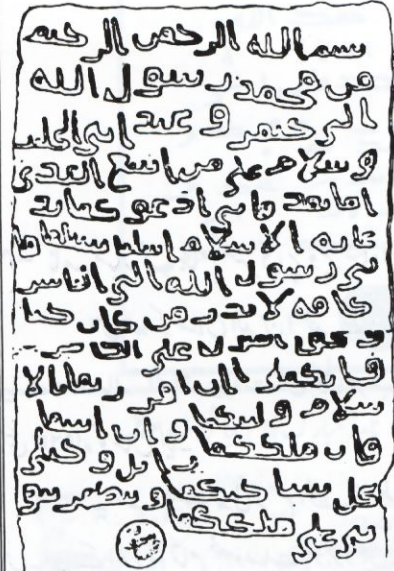 بسم الله الرحمن الرحيم
من محمد رسول الله
الى جيفر و عبد ابني الجلند
و سلام على من اتبع الهدى
اما بعد فاني ادعوكما بد
عايه الاسلام اسلما تسلما فا
ني رسول الله الى الناس
كافه لانذر من كان حيا
و يحق القول على الكافرين
فانكما ان اقررتما بالا
سلام وليتكما وان ابيتما
فان ملككما زائل و خيلي
تحل بساحتكما و تظهر نبو
تي على ملككما